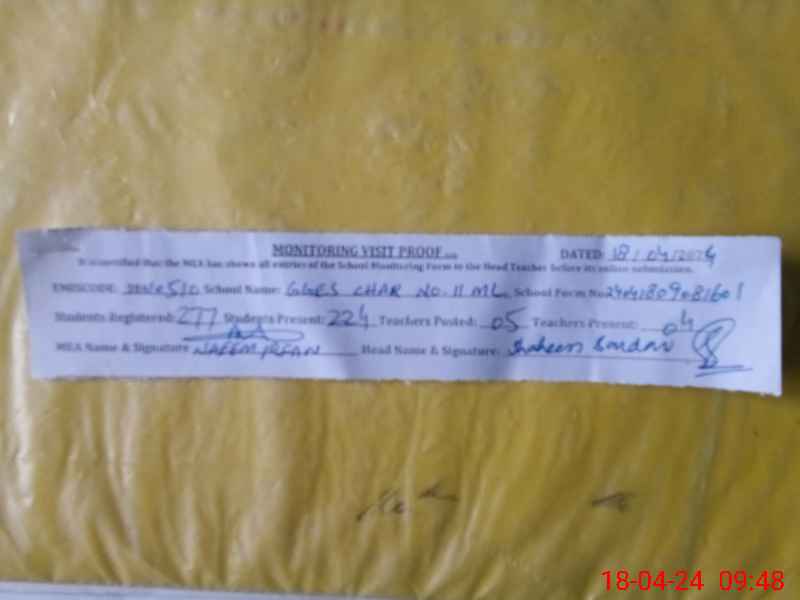 MONITORING VISIT PROOF DATED: 18/04/2024
It is certified that the MEA has shown all entries of the School Monitoring Form to the Head Teacher before its online submission.
EMISCODE: School Name: GGES CHAR NO. 11 ML School Form No 24041809081601
Students Registered: 277 Students Present: 224 Teachers Posted: 05 Teachers Present: 04
MEA Name & Signature NAEEM IRFAN Head Name & Signature: Shaheen Sardar
18-04-24 09:48